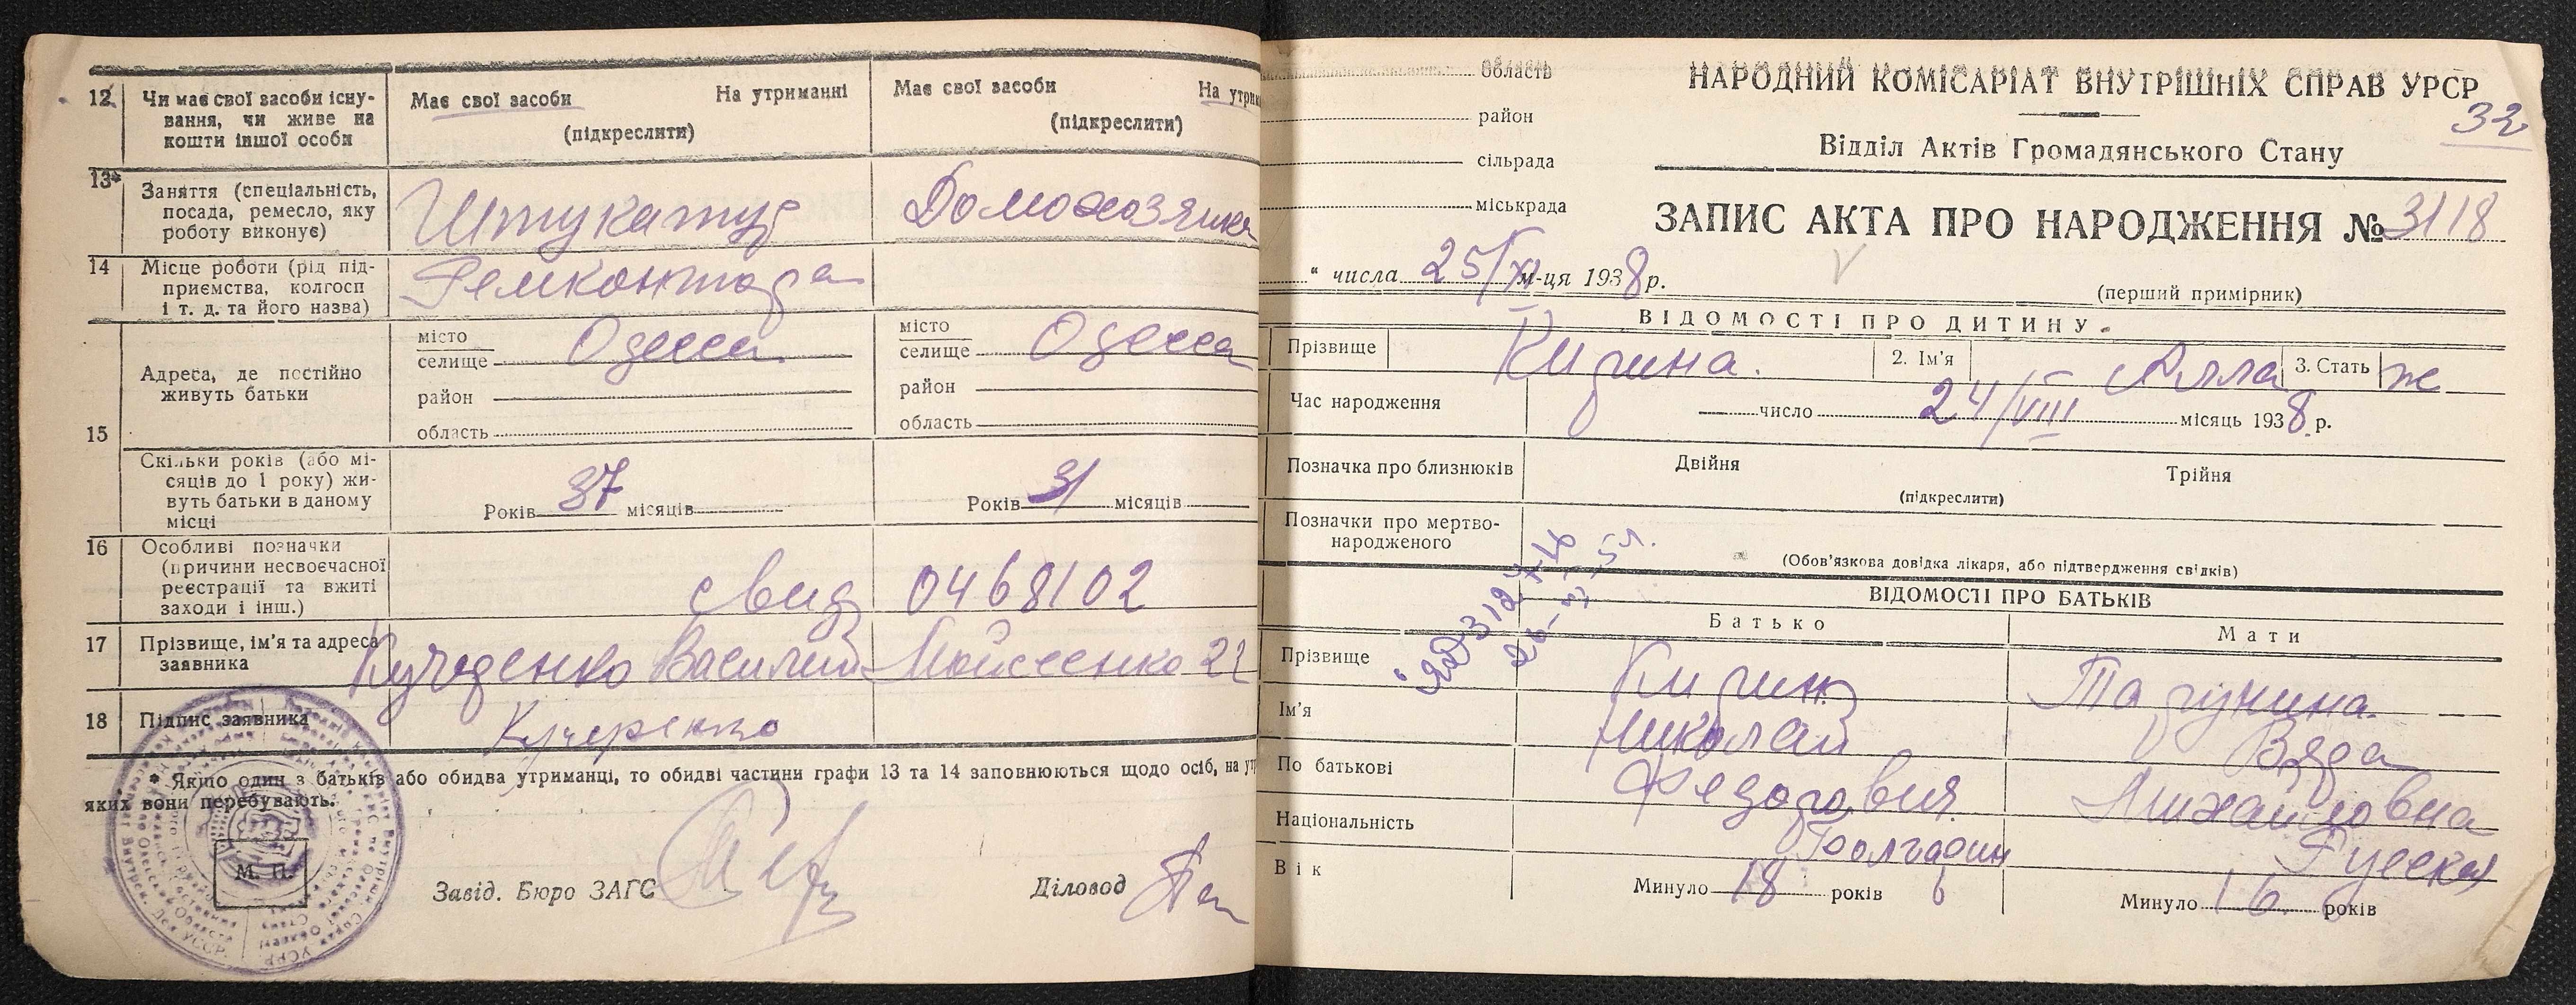 12 Чи має свої засоби існу-
вання, чи живе на
кошти іншої особи
Має свої засоби На утриманні
(підкреслити)
Має свої засоби На утрим
(підкреслити)
13* Заняття (спеціальність,
посада, ремесло, яку
роботу виконує)
Штукатур
Домохозяйка
14 Місце роботи (рід під-
приємства, колгосп
і т. д. та його назва)
Ремконтора
15 Адреса, де постійно
живуть батьки
місто
селище Одесса
район
область
місто
селище Одесса
район
область
Скільки років (або мі-
сяців до 1 року) жи-
вуть батьки в даному
місці
Років 37 місяців
Років 31 місяців
16 Особливі позначки
(причини несвоєчасної
реєстрації та вжиті
заходи і інш.)
свид 0468102
17 Прізвище, ім'я та адреса
заявника
Кучеренко Василий Мойсеенко 22
18 Підпис заявника
Кучеренко
* Якщо один з батьків або обидва утриманці, то обидві частини графи 13 та 14 заповнюються щодо осіб, на ут
яких вони перебувають.
М. П.
Завід. Бюро ЗАГС
Діловод
область
район
сільрада
міськрада
НАРОДНИЙ КОМІСАРІАТ ВНУТРІШНІХ СПРАВ УРСР
32
Відділ Актів Громадянського Стану
ЗАПИС АКТА ПРО НАРОДЖЕННЯ № 3118
" числа 25/XI м-ця 1938 р.
(перший примірник)
ВІДОМОСТІ ПРО ДИТИНУ
Прізвище Кирина. 2. Ім'я Алла 3. Стать ж
Час народження число 24/VIII місяць 1938 р.
Позначка про близнюків Двійня Трійня
(підкреслити)
Позначки про мертво-
народженого
(Обов'язкова довідка лікаря, або підтвердження свідків)
ВІДОМОСТІ ПРО БАТЬКІВ
Батько Мати
Прізвище Кирин Тарунина.
Ім'я Николай Вера
По батькові Федорович Михайловна
Національність Болгарин Русская
Вік Минуло 18 років Минуло 16 років